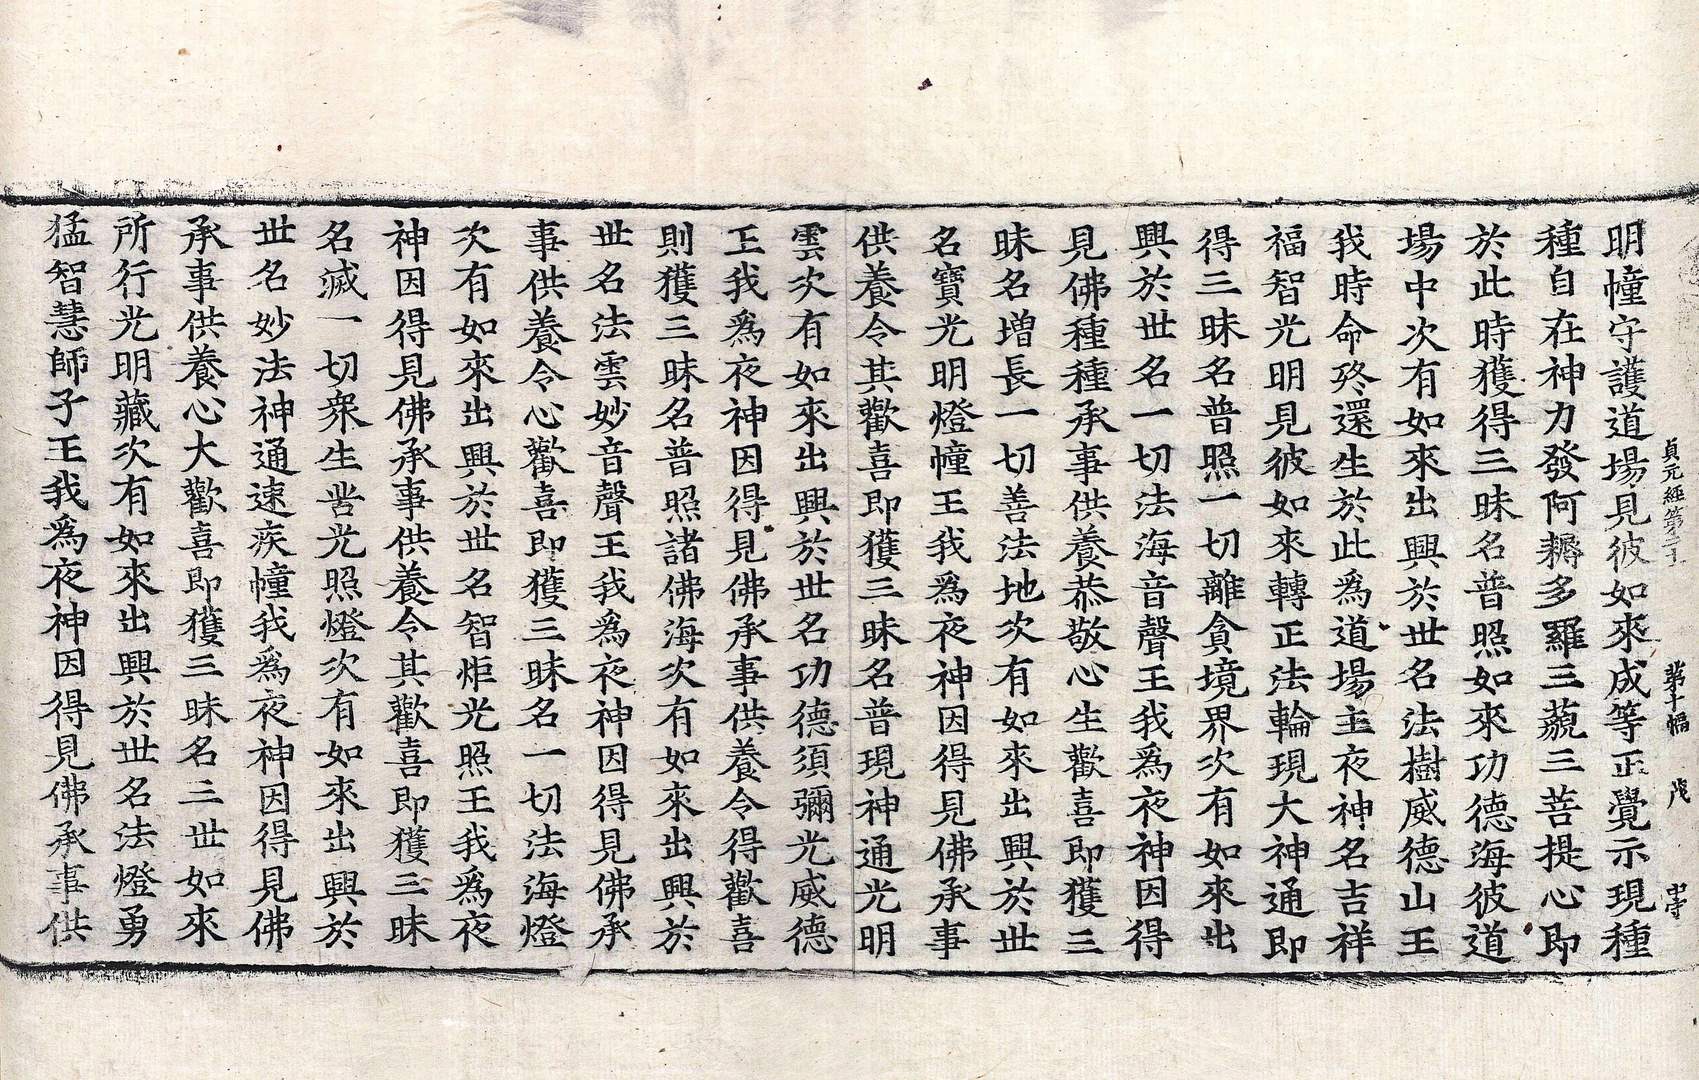 貞元經第二十 第十幅 茂 中守
明幢守護道場見彼如來成等正覺示現種
種自在神力發阿耨多羅三藐三菩提心即
於此時獲得三昧名普照如來功德海彼道
場中次有如來出興於世名法樹威德山王
我時命終還生於此為道場主夜神名吉祥
福智光明見彼如來轉正法輪現大神通即
得三昧名普照一切離貪境界次有如來出
興於世名一切法海音聲王我為夜神因得
見佛種種承事供養恭敬心生歡喜即獲三
昧名增長一切善法地次有如來出興於世
名寶光明燈幢王我為夜神因得見佛承事
供養令其歡喜即獲三昧名普現神通光明
雲次有如來出興於世名功德須彌光威德
王我為夜神因得見佛承事供養令得歡喜
則獲三昧名普照諸佛海次有如來出興於
世名法雲妙音聲王我為夜神因得見佛承
事供養令心歡喜即獲三昧名一切法海燈
次有如來出興於世名智炬光照王我為夜
神因得見佛承事供養令其歡喜即獲三昧
名滅一切眾生苦光照燈次有如來出興於
世名妙法神通速疾幢我為夜神因得見佛
承事供養心大歡喜即獲三昧名三世如來
所行光明藏次有如來出興於世名法燈勇
猛智慧師子王我為夜神因得見佛承事供